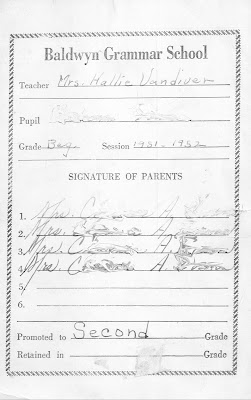 Baldwyn Grammar School
Teacher Mrs. Hallie Vandiver
Pupil
Grade Beg. Session 1951-1952
SIGNATURE OF PARENTS
1. Mrs. A.
2. Mrs. A.
3. Mrs. A.
4. Mrs. A.
5.
6.
Promoted to Second Grade
Retained in Grade